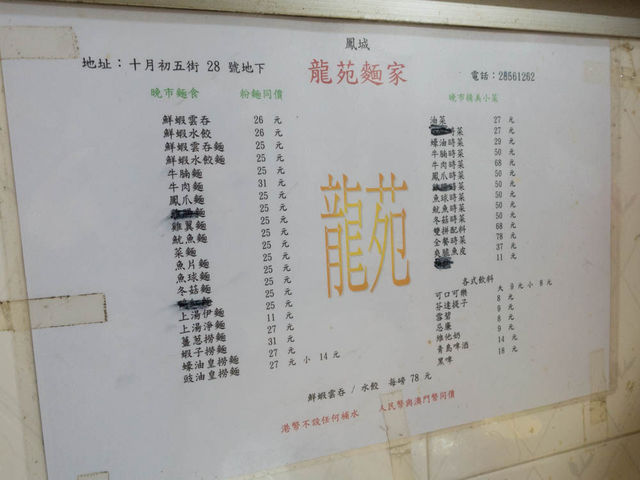 鳳城
地址：十月初五街 28 號地下
龍苑麵家
電話：28561262
晚市麵食 粉麵同價
鮮蝦雲吞 26 元
鮮蝦水餃 26 元
鮮蝦雲吞麵 25 元
鮮蝦水餃麵 25 元
牛腩麵 25 元
牛肉麵 31 元
鳳爪麵 25 元
麵 25 元
雞翼麵 25 元
魷魚麵 25 元
菜麵 25 元
魚片麵 25 元
魚球麵 25 元
冬菇麵 25 元
25 元
上湯伊麵 25 元
上湯淨麵 11 元
薑蔥撈麵 27 元
蝦子撈麵 31 元
蠔油皇撈麵 27 元
豉油皇撈麵 27 元 小 14 元
龍苑
晚市精美小菜
油菜 27 元
時菜 27 元
蠔油時菜 29 元
牛腩時菜 50 元
牛肉時菜 68 元
鳳爪時菜 50 元
時菜 50 元
魚球時菜 50 元
魷魚時菜 50 元
冬菇時菜 50 元
雙拼配料 68 元
全餐時菜 78 元
爽脆魚皮 37 元
11 元
各式飲料
可口可樂 大 9 元 小 8 元
芬達提子 8 元
雪碧 9 元
忌廉 8 元
維他奶 9 元
青島啤酒 14 元
黑啤 18 元
鮮蝦雲吞 / 水餃 每磅 78 元
港幣不設任何補水 人民幣與澳門幣同價